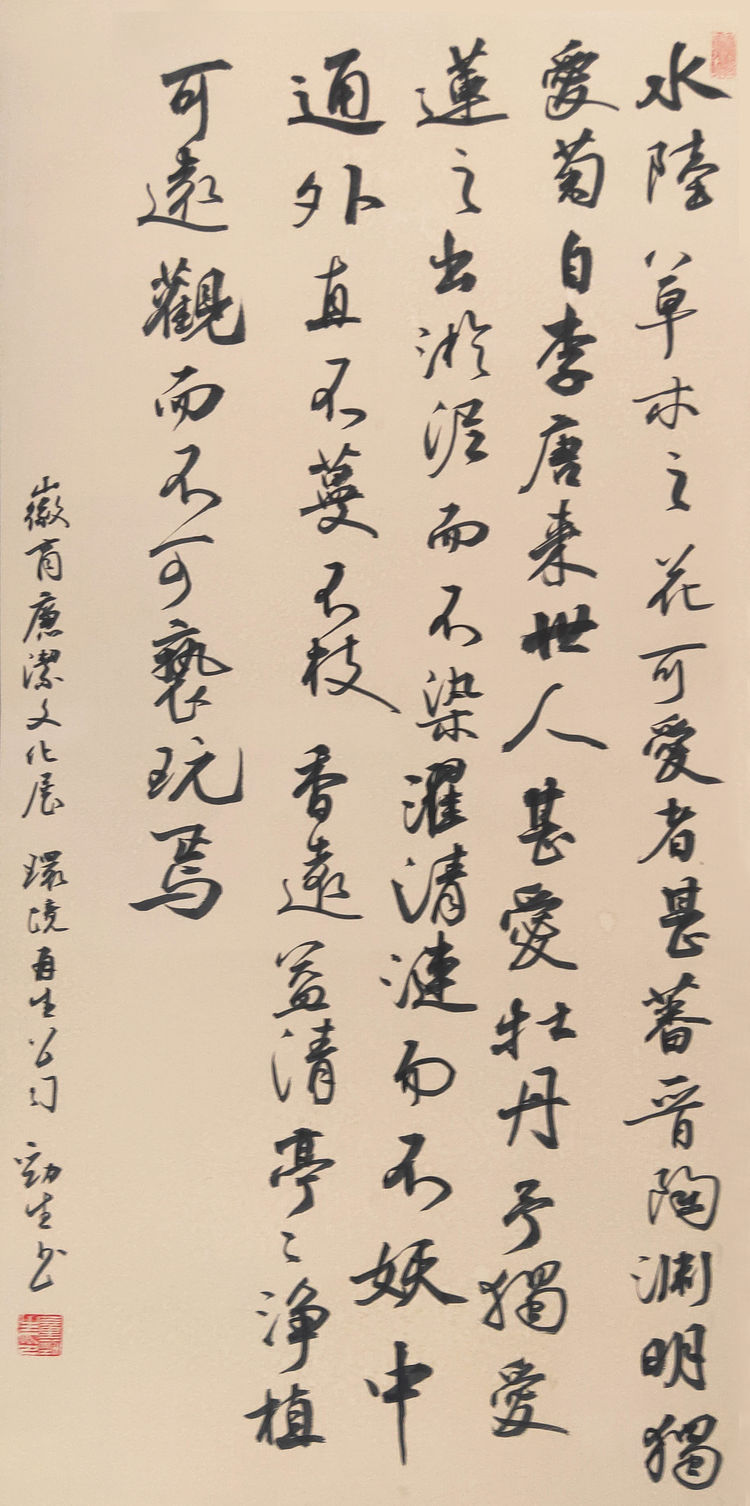 水陸草木之花可愛者甚蕃晋陶渊明獨
愛菊自李唐来世人甚愛牡丹予獨愛
蓮之出淤泥而不染濯清漣而不妖中
通外直不蔓不枝香遠益清亭々淨植
可遠觀而不可褻玩焉
徽商廉潔文化展 環境再生公司 勁生书